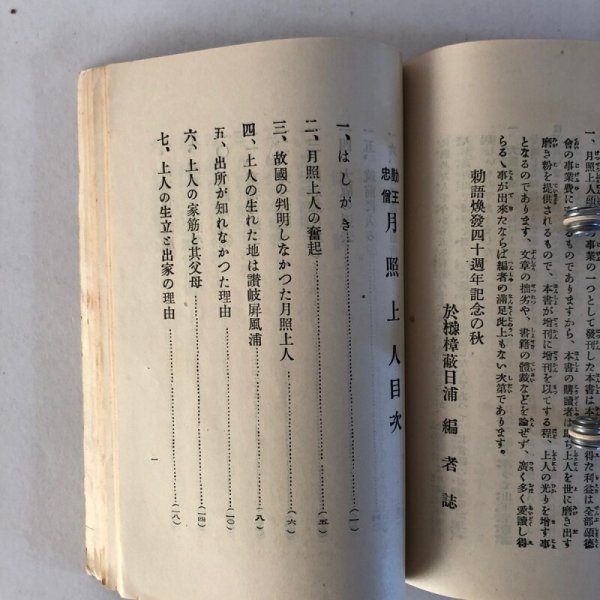 一、月照上人頌德會の事業の一つとして發刊した本書は本書の得た利益は全部頌德
會の事業費に充るものでありますから、本書の購讀者は即ち上人を世に磨き出す
磨き粉を提供されるもので、本書が增刊に增刊を以てする程、上人の光りを增す事
となるのであります、文章の拙劣や、書籍の體裁などを論ぜず、廣く多く愛讀し得
らるゝ事が出來たならば編者の滿足此上もない次第であります。
勅語煥發四十週年記念の秋
於樟蔽日浦 編者誌
勤王
忠僧 月照上人目次
一、はしがき……(一)
二、月照上人の奮起……(五)
三、故國の判明しなかつた月照上人……(六)
四、上人の生れた地は讃岐屏風浦……(八)
五、出所が知れなかつた理由……(一〇)
六、上人の家筋と其父母……(一四)
七、上人の生立と出家の理由……(一八)
一